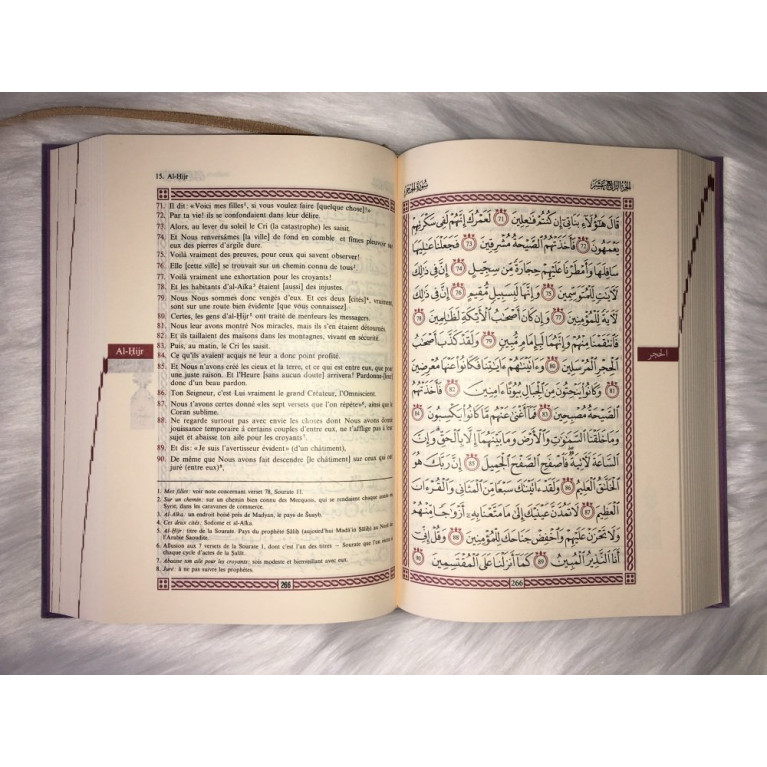 15. Al-Ḥijr
71. Il dit: «Voici mes filles¹, si vous voulez faire [quelque chose]!»
72. Par ta vie! ils se confondaient dans leur délire.
73. Alors, au lever du soleil le Cri (la catastrophe) les saisit.
74. Et Nous renversâmes [la ville] de fond en comble et fîmes pleuvoir sur
eux des pierres d'argile dure.
75. Voilà vraiment des preuves, pour ceux qui savent observer!
76. Elle [cette ville] se trouvait sur un chemin connu de tous².
77. Voilà vraiment une exhortation pour les croyants!
78. Et les habitants d'al-Aïka³ étaient [aussi] des injustes.
79. Nous Nous sommes donc vengés d'eux. Et ces deux [cités]⁴, vraiment,
sont sur une route bien évidente [que vous connaissez].
80. Certes, les gens d'al-Ḥijr⁵ ont traité de menteurs les messagers.
81. Nous leur avons montré Nos miracles, mais ils s'en étaient détournés.
82. Et ils taillaient des maisons dans les montagnes, vivant en sécurité.
83. Puis, au matin, le Cri les saisit.
84. Ce qu'ils avaient acquis ne leur a donc point profité.
85. Et Nous n'avons créé les cieux et la terre, et ce qui est entre eux, que pour
une juste raison. Et l'Heure [sans aucun doute] arrivera! Pardonne-[leur]
donc d'un beau pardon.
86. Ton Seigneur, c'est Lui vraiment le grand Créateur, l'Omniscient.
87. Nous t'avons certes donné «les sept versets que l'on répète»⁶, ainsi que le
Coran sublime.
88. Ne regarde surtout pas avec envie les choses dont Nous avons donné
jouissance temporaire à certains couples d'entre eux, ne t'afflige pas à leur
sujet et abaisse ton aile pour les croyants⁷.
89. Et dis: «Je suis l'avertisseur évident» (d'un châtiment),
90. De même que Nous avons fait descendre [le châtiment] sur ceux qui ont
juré (entre eux)⁸,
1. Mes filles: voir note concernant verset 78, Sourate 11.
2. Sur un chemin: sur un chemin bien connu des Mecquois, qui se rendaient chaque année en
Syrie, dans les caravanes de commerce.
3. Al-Aïka: un endroit boisé près de Madyan, le pays de Šuayb.
4. Ces deux cités: Sodome et al-Aïka.
5. Al-Ḥijr: titre de la Sourate. Pays du prophète Ṣāliḥ (aujourd'hui Madā'in Ṣāliḥ) au Nord de
l'Arabie Saoudite.
6. Allusion aux 7 versets de la Sourate 1, dont c'est l'un des titres — Sourate que l'on
chaque cycle d'actes de la Ṣalāt.
7. Abaisse ton aile pour les croyants: sois modeste et bienveillant avec eux.
8. Juré: à ne pas suivre les prophètes.
266
Al-Ḥijr
سورة الحجر
الجزء الرابع عشر
قَالَ هَٰٓؤُلَآءِ بَنَاتِىٓ إِن كُنتُمْ فَٰعِلِينَ ٧١ لَعَمْرُكَ إِنَّهُمْ لَفِى سَكْرَتِهِمْ
يَعْمَهُونَ ٧٢ فَأَخَذَتْهُمُ ٱلصَّيْحَةُ مُشْرِقِينَ ٧٣ فَجَعَلْنَا عَٰلِيَهَا
سَافِلَهَا وَأَمْطَرْنَا عَلَيْهِمْ حِجَارَةً مِّن سِجِّيلٍ ٧٤ إِنَّ فِى ذَٰلِكَ
لَءَايَٰتٍ لِّلْمُتَوَسِّمِينَ ٧٥ وَإِنَّهَا لَبِسَبِيلٍ مُّقِيمٍ ٧٦ إِنَّ فِى ذَٰلِكَ
لَءَايَةً لِّلْمُؤْمِنِينَ ٧٧ وَإِن كَانَ أَصْحَٰبُ ٱلْأَيْكَةِ لَظَٰلِمِينَ ٧٨
فَٱنتَقَمْنَا مِنْهُمْ وَإِنَّهُمَا لَبِإِمَامٍ مُّبِينٍ ٧٩ وَلَقَدْ كَذَّبَ أَصْحَٰبُ
ٱلْحِجْرِ ٱلْمُرْسَلِينَ ٨٠ وَءَاتَيْنَٰهُمْ ءَايَٰتِنَا فَكَانُوا۟ عَنْهَا مُعْرِضِينَ
٨١ وَكَانُوا۟ يَنْحِتُونَ مِنَ ٱلْجِبَالِ بُيُوتًا ءَامِنِينَ ٨٢ فَأَخَذَتْهُمُ
ٱلصَّيْحَةُ مُصْبِحِينَ ٨٣ فَمَآ أَغْنَىٰ عَنْهُم مَّا كَانُوا۟ يَكْسِبُونَ ٨٤
وَمَا خَلَقْنَا ٱلسَّمَٰوَٰتِ وَٱلْأَرْضَ وَمَا بَيْنَهُمَآ إِلَّا بِٱلْحَقِّ وَإِنَّ
ٱلسَّاعَةَ لَءَاتِيَةٌ فَٱصْفَحِ ٱلصَّفْحَ ٱلْجَمِيلَ ٨٥ إِنَّ رَبَّكَ هُوَ
ٱلْخَلَّٰقُ ٱلْعَلِيمُ ٨٦ وَلَقَدْ ءَاتَيْنَٰكَ سَبْعًا مِّنَ ٱلْمَثَانِى وَٱلْقُرْءَانَ
ٱلْعَظِيمَ ٨٧ لَا تَمُدَّنَّ عَيْنَيْكَ إِلَىٰ مَا مَتَّعْنَا بِهِۦٓ أَزْوَٰجًا مِّنْهُمْ
وَلَا تَحْزَنْ عَلَيْهِمْ وَٱخْفِضْ جَنَاحَكَ لِلْمُؤْمِنِينَ ٨٨ وَقُلْ إِنِّىٓ
أَنَا ٱلنَّذِيرُ ٱلْمُبِينُ ٨٩ كَمَآ أَنزَلْنَا عَلَى ٱلْمُقْتَسِمِينَ ٩٠
266
الحجر